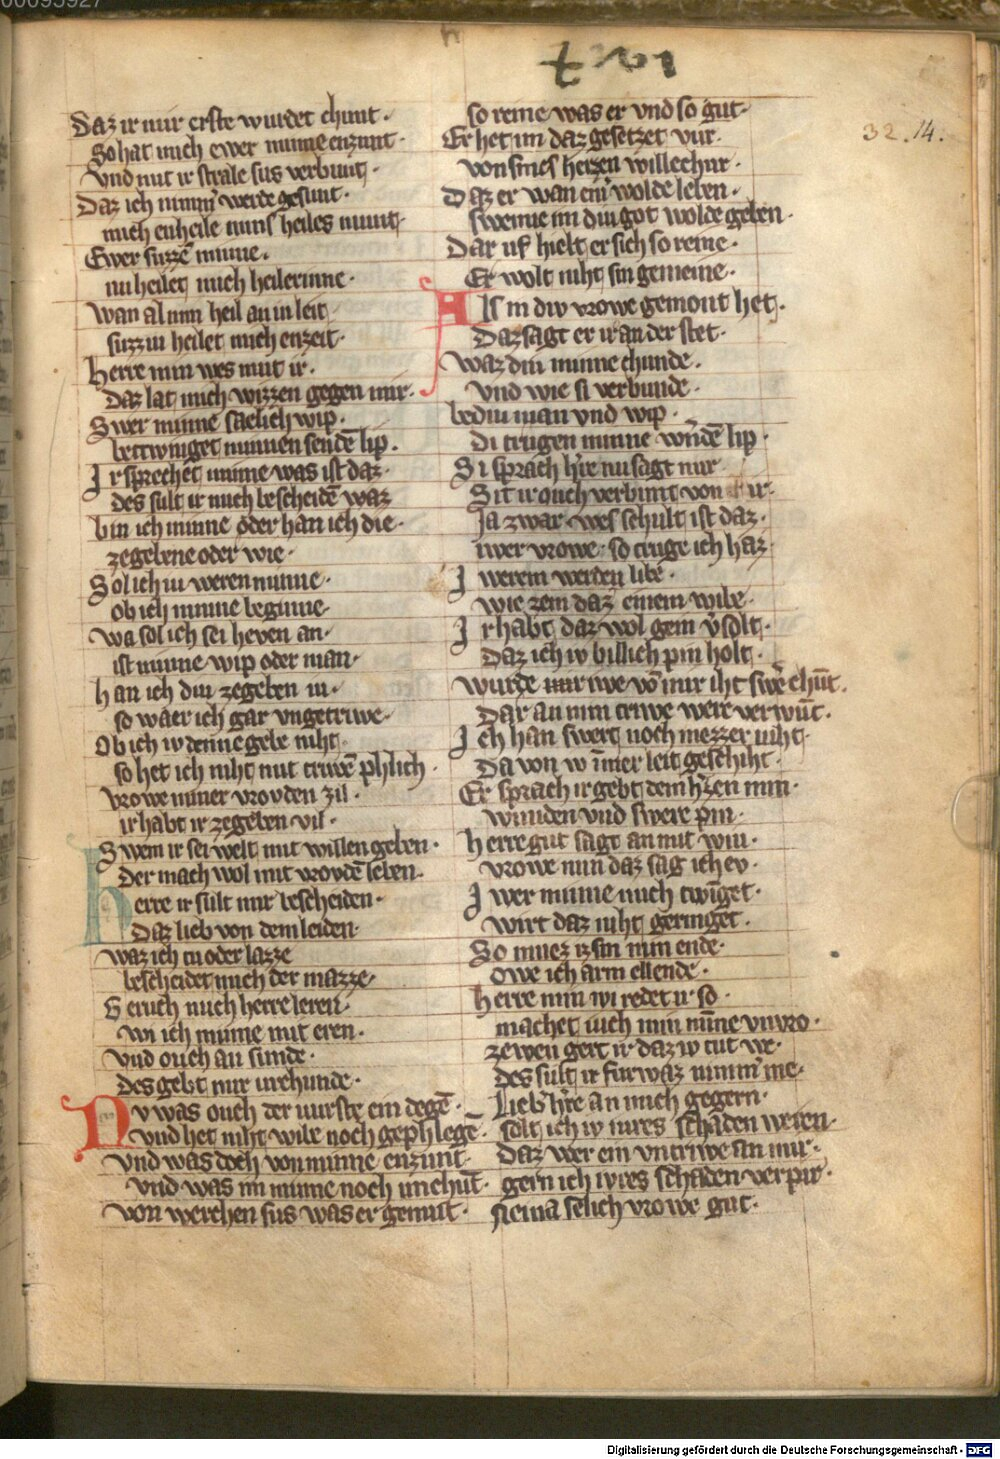 Daz ir mir erste wurdet chunt ·
So hat mich ewer minne enzunt ·
Vnd mit ir strale sus verbunt ·
Daz ich nimm̄ werde gesunt ·
mich enheile mins heiles munt ·
Ewer suzzē minne ·
nu heilet mich heilerinne ·
Wan al min heil an iu leit
suzziu heilet mich enzeit ·
herre min wes mut ir ·
Daz lat mich wizzen gegen mir ·
Swer minne saelich wip ·
bettwinget minnen sendē lip ·
Ir sprechet minne was ist daz ·
des sult ir mich bescheidē waz
bin ich minne oder han ich die ·
zegebene oder wie ·
Sol ich iu weren minne ·
ob ich minne beginne ·
wa sol ich sei heven an ·
ist minne wip oder man ·
han ich diu zegeben iu ·
so waer ich gar vngetriwe ·
Ob ich iv denne gebe niht
so het ich niht mit triwē phlich ·
vrowe miner vrovden zil ·
ir habt ir zegeben vil ·
Swem ir sei welt mit willen geben ·
der mach wol mit vrovdē leben ·
herre ir sult mir bescheiden ·
Daz lieb von dem leiden
waz ich tu oder lazze
bescheidet mich der mazze ·
Geruch mich herre leren ·
wi ich minne mit eren ·
vnd ouch an sunde ·
des gebt mir vrchunde ·
Nv was ouch der vurste ein degē ·
vnd het niht wibe noch gephlegē ·
vnd was doch von minne enzunt
vnd was im minne noch unchūt ·
von werchen sus was er gemut ·
so reine was er vnd so gut ·
Er het im daz gesetzet vur ·
von sines herzen willechur ·
Daz er wan einr wolde leben ·
swenne im diu got wolde geben ·
Dar uf hielt er sich so reine ·
Er wolt niht sin gemeine ·
Als in div vrowe gemont het ·
Daz sagt er ir an der stet ·
waz diu minne chunde ·
vnd wie si verbunde ·
bediu man vnd wip ·
Di trugen minne wndē lip ·
Si sprach hre nu sagt mir
Sit ir ouch verbunt von ir ·
Ja zwar wes schult ist daz ·
iwer vrowe · so truge ich haz
Iwerem werden libe ·
wie zem daz einem wibe ·
Ir habt daz wol gem vsolt ·
Daz ich iv billich pin holt ·
wurde iwe vō mir iht swe chūt ·
Dar an min triwe were verwūt ·
Ich han swert noch mezzer niht ·
Da von iv īmer leit geschiht ·
Er sprach ir gebt dem hzen min ·
wunden vnd swere pin ·
herre gut sagt an mit wiu ·
vrowe min daz sag ich ev ·
Iwer minne mich twīget ·
wirt daz niht geringet ·
So muez iz sin min ende ·
owe ich arm ellende ·
herre min wi redet ir so ·
machet iuch min mīne vnvro ·
zewen gert ir daz iv tut we ·
des sult ir fur waz nimm̄ me ·
Lieb hre an mich gegern ·
solt ich iv iwres schaden weren ·
daz wer ein vntriwe an mir ·
gern ich ivres schaden verpir ·
neina selich vrowe gut ·
32. 14.
Digitalisierung gefördert durch die Deutsche Forschungsgemeinschaft - DFG